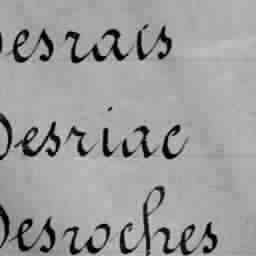 Desrais
Desriac
Desroches